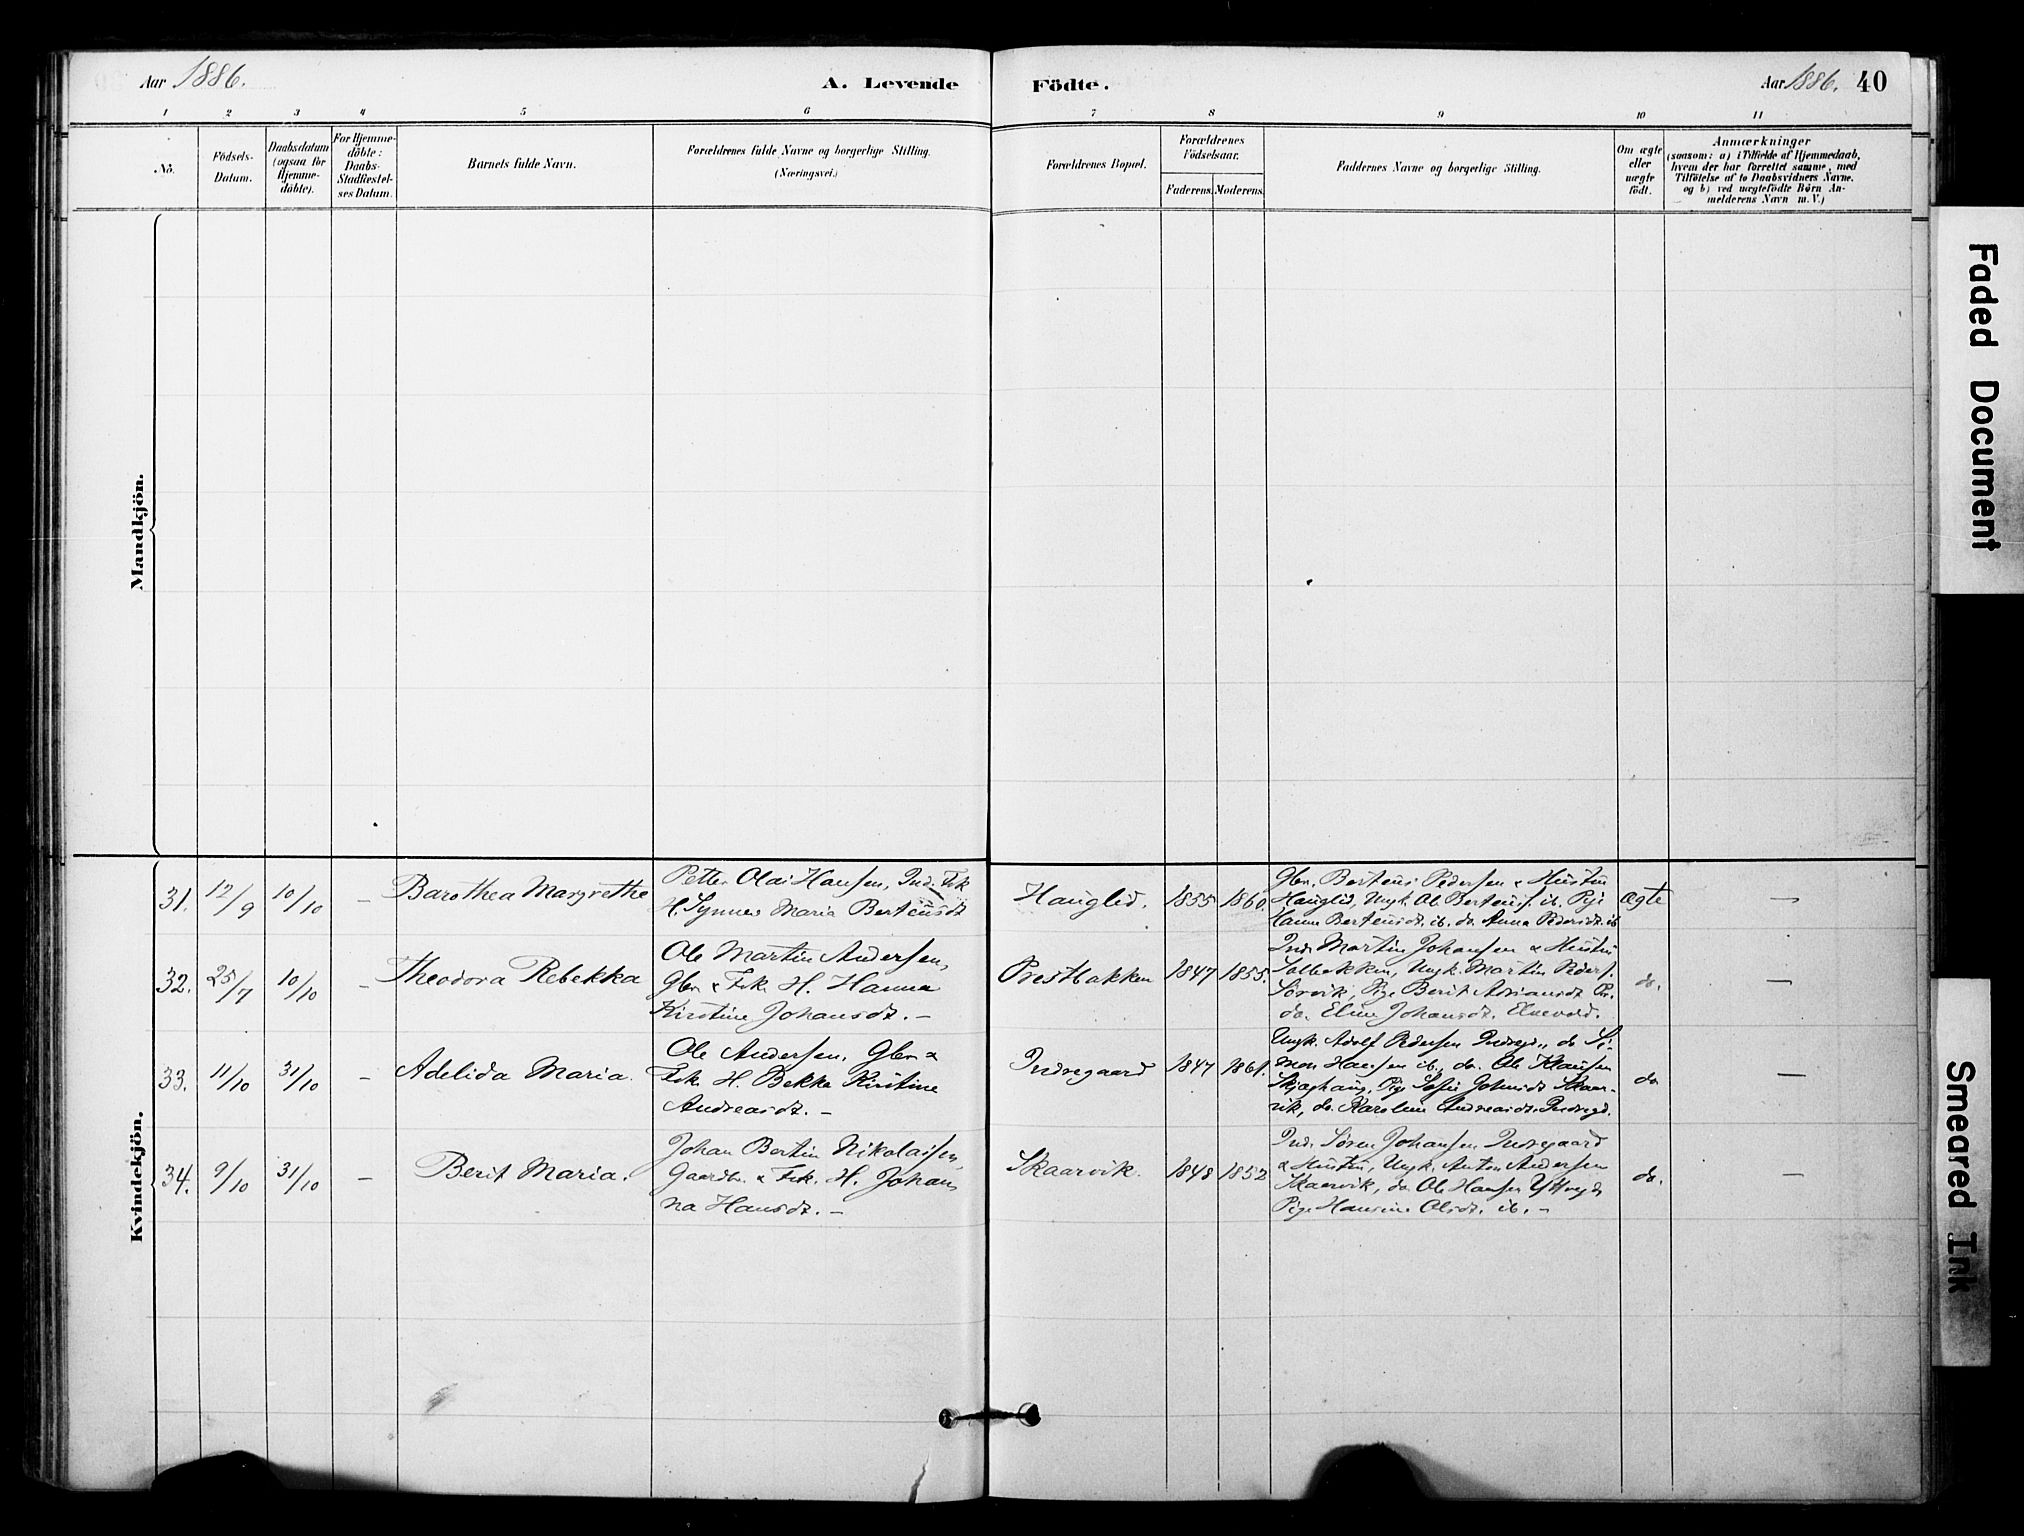 Aar 1886.
A. Levende
Födte.
Aar 1886. 40
1 2 3 4 5 6 7 8 9 10 11
No.
Födsels-
Datum.
Daabsdatum
(ogsaa for
Hjemme-
döbte).
For Hjemme-
döbte:
Daabs-
Stadfæstel-
ses Datum.
Barnets fulde Navn.
Forældrenes fulde Navne og borgerlige Stilling.
(Næringsvei.)
Forældrenes Bopæl.
Forældrenes
Födselsaar.
Faderens. Moderens.
Faddernes Navne og borgerlige Stilling.
Om ægte
eller
uægte
födt.
Anmærkninger
(saasom: a) i Tilfælde af Hjemmedaab,
hvem der har forrettet samme, med
Tilföielse af to Daabsvidners Navne.
og b) ved uægtefödte Börn An-
melderens Navn m.V.)
Mandkjön.
Kvindekjön.
31. 12/9 10/10 – Barothea Margrethe
Petter Olai Hansen, Ind. Fsk
H. Synnev Maria Bertensdt
Hauglid. 1855 1860.
Gbr. Bertens Pedersen & Hustru
Hauglid, Ungk. Ole Bertens. ib. Pige
Hanna Bertensdt. ib. do. Anna Pedersdt. ib
Ægte –
32. 25/7 10/10 – Theodora Rebekka
Ole Martin Andersen,
Gbr & Fsk. H. Hanna
Kirstine Johansdt. –
Prestbakken 1847 1855.
Ind. Martin Johansen & Hustru
Solbakken, Ungk. Martin Peders.
Sörvik, Pige Berit Adriansdt
do. Eline Johansdt. Elvevold.
do. –
33. 11/10 31/10 – Adelida Maria.
Ole Andersen, Gbr &
Fsk. H. Bekka Kirstine
Andreasdt. –
Indregaard 1847 1861.
Ungk. Adolf Pedersen Indregd., do Si-
mon Hansen ib., do. Ole Klausen
Skjæghaug, Pige Sofie Johnsdt Skaar-
vik, do. Karoline Andreasdt. Indregd.
do –
34. 9/10 31/10 – Berit Maria.
Johan Bertin Nikolaisen,
Gaardbr. & Fsk. H. Johan-
na Hansdt. –
Skaarvik. 1848 1852
Ind. Sören Johansen Indregaard
& Hustru, Ungk. Anton Andersen
Skaarvik, do Ole Hansen
Pige Hansine Olsdt. ib. –
do. –
Faded Document
Smeared Ink